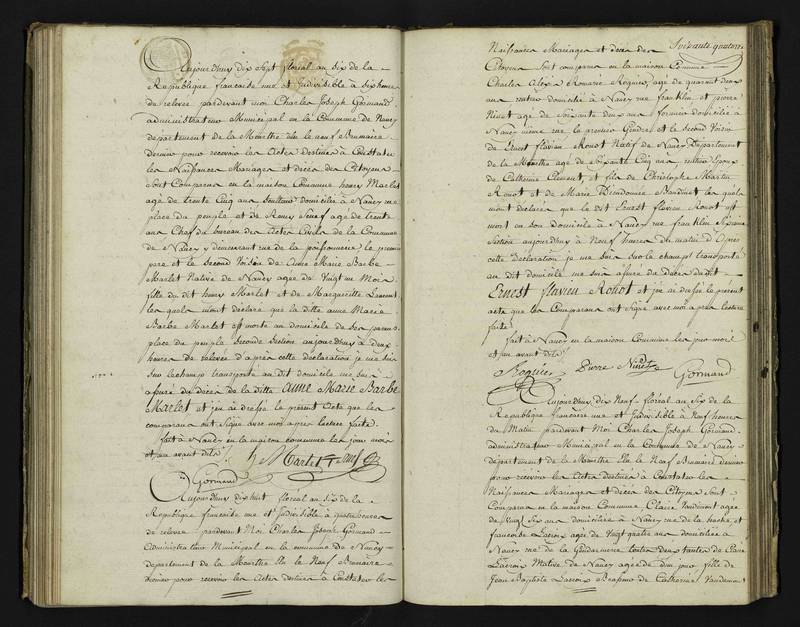 Aujourdhuy dix sept floréal an six de la
Republique francaise une et Indivisible à six heures
de relevée pardevant moi Charles Joseph Gormand
administrateur Municipal en la Commune de Nancy
département de la Meurthe élu le neuf Brumaire
Dernier pour recevoir les Actes Destinés à Constater
les Naissances Mariages et décès des Citoyens
Sont Comparus en la maison Commune henry Marlet
age de trente Cinq ans Sculteur domicilié à Nancy
place du peuple et de Remy Senef age de trente
ans Chef du bureau des Actes Civils de la Commune
de Nancy y demeurant rue de la poissonnerie le premier
pere et le Second Voisin de Anne Marie Barbe
Marlet Native de Nancy agée de Vingt un Mois
fille du dit henry Marlet et de Margueritte Laurent
les quels mont déclaré que la ditte anne Marie
Barbe Marlet est morte au domicile de ses pere
place du peuple Seconde Section aujourdhuy à deux
heures de relevée d'après cette déclaration je me suis
sur lechamp transporté au dit domicile me suis
assuré du Décès de la ditte anne Marie Barbe
Marlet et jen ai dressé le présent Acte que les
comparans ont Signé avec moi apres lecture faite
fait à Nancy en la maison commune les jour mois
et an avant dits
h Marlet Senef
Gormand
Aujourdhuy dix huit floréal an six de la
Republique francaise une et Indivisible à quatre heures
de relevée pardevant Moi Charles Joseph Gormand
Administrateur Municipal en la commune de Nancy
departement de la Meurthe élu le Neuf Brumaire
dernier pour recevoir les Actes destinés à Constater les
Soixante quatorze
Naissances Mariages et décès des
Citoyens Sont comparus en la maison Commune
Charles Romarie Roquier age de quarante deux
ans rentier domicilié à Nancy rue franklin et pierre
Ninet age de Soixante deux ans domicilié à
Nancy meme rue le premier Gendre et le Second Voisin
de Ernest flavien Rouot Natif de Nancy Département
de la Meurthe age de Soixante Cinq ans rentier Epoux
de Catherine Clement et fils de Christophe Martin
Rouot et de Marie les quels
mont declarés que le dit Ernest flavien Rouot est
mort en son domicile à Nancy rue franklin
Section aujourdhuy à Neuf heures du matin d'Apres
cette déclaration je me suis Sur le champ transporté
au dit domicile me suis assuré du Décès du dit
Ernest flavien Rouot et jen ai dressé le présent
acte que les Comparans ont Signé avec moi apres lecture
faite
fait à Nancy en la maison Commune les jour mois
et an avant dits
Roquier Pierre Ninet Gormand
Aujourdhuy dix Neuf floréal an Six de la
Republique francaise une et Indivisible à Neuf heures
du Matin pardevant Moi Charles Joseph Gormand
administrateur Municipal en la Commune de Nancy
département de la Meurthe Elu le Neuf Brumaire Dernier
pour recevoir les Actes Destinés à Constater les
Naissances Mariages et décès des Citoyens Sont
Comparus en la maison Commune Claire Vaudemont agée
de Vingt Six ans domiciliée à Nancy rue de la hache et
francoise Lacroix agée de Vingt quatre ans domiciliée à
Nancy rue de la Gendarmerie toutes deux tantes de
Lacroix Native de Nancy agée de dun jour fille de
Jean Baptiste Lacroix et de Catherine Vaudemont